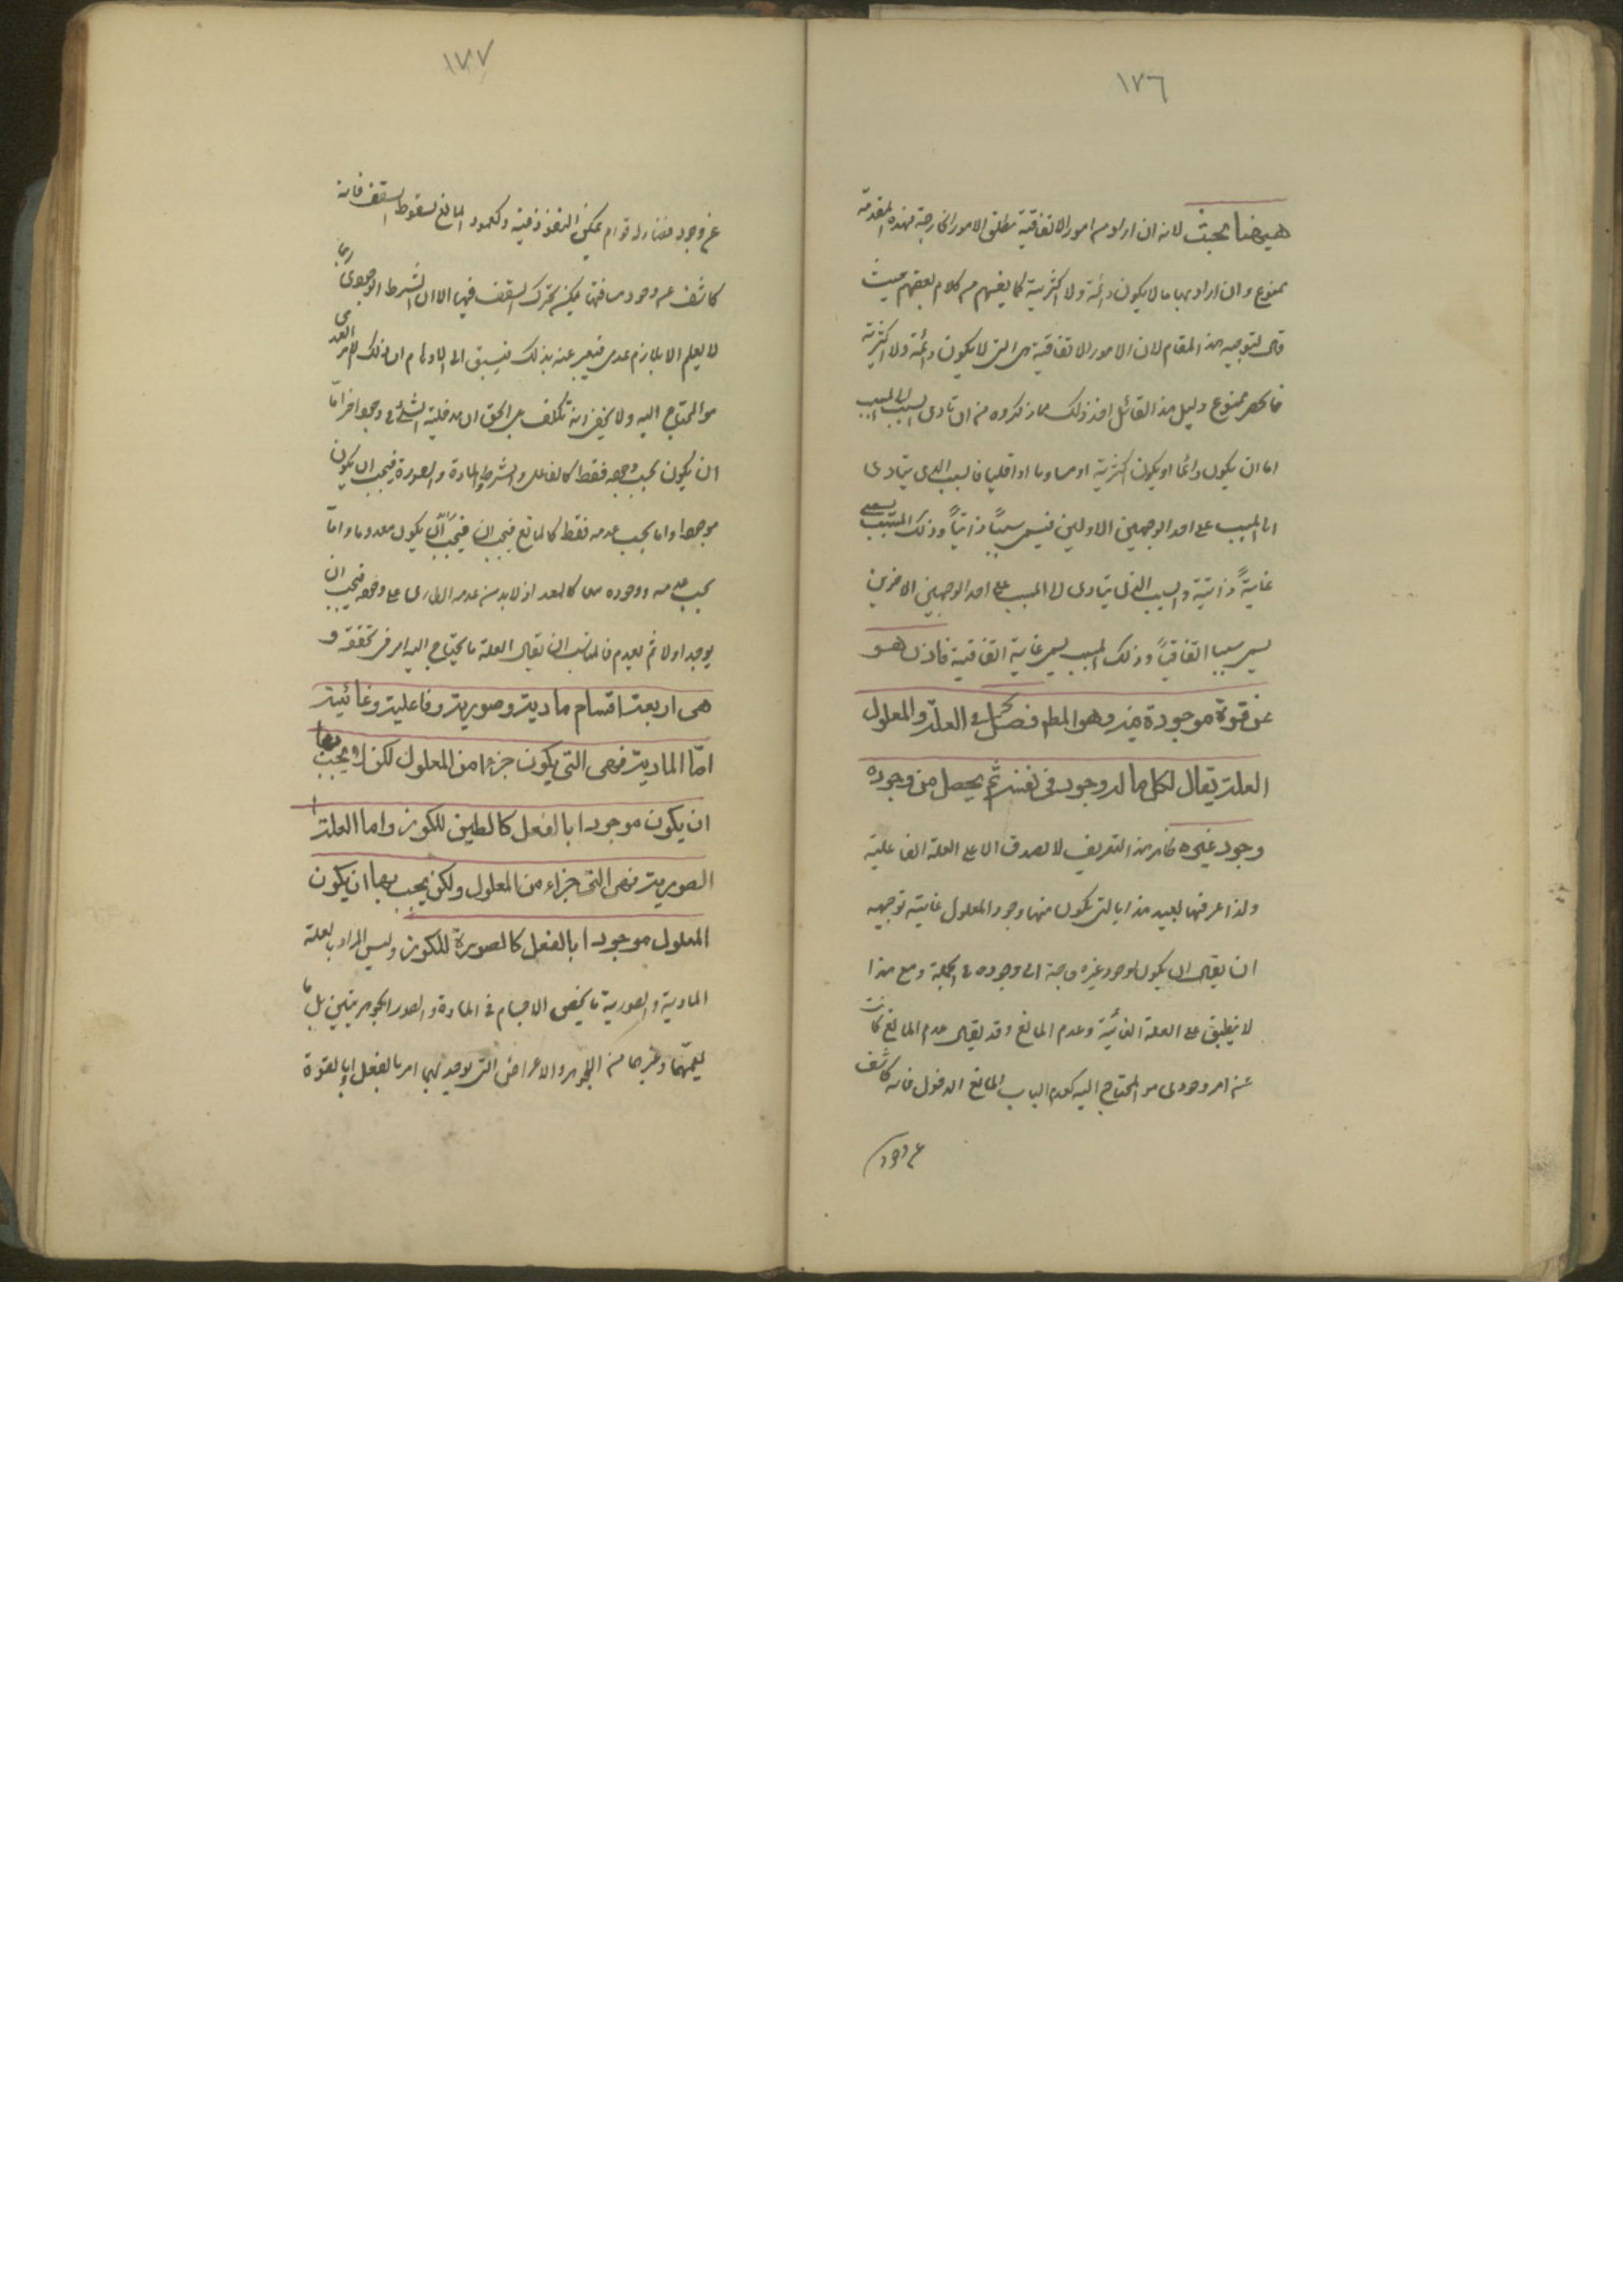 ١٧٦
ههنا بحث لانه ان اراد من امور الاتفاقية مطلق الامور الخارجة فهذه المقدمة
ممنوع وان اراد بها ما لا يكون دائمة ولا اكثرية كما يفهم من كلام بعضهم حيث
قال لتوجيه هذا المقام لان الامور الاتفاقية هي التي لا يكون دائمة ولا اكثرية
فالحصر ممنوع ودليل هذا القائل اخذ ذلك مما ذكروه من ان تادى السبب الى المسبب
اما ان يكون دائما او يكون اكثرية او مساويا او اقليا فالسبب الذى يتادى
الى المسبب على احد الوجهين الاولين فيسمى سببًا ذاتيًا وذلك المسبب يسمى
غايةً ذاتية والسبب الذى يتادى الى المسبب على احد الوجهين الاخرين
يسمى سببا اتفاقيًا وذلك المسبب يسمى غاية اتفاقية فاذن هو
عن قوة موجودة فيه وهو المطـ فصل فى العلة والمعلول
العلة يقال لكل ما له وجود فى نفسه ثم يحصل من وجوده
وجود غيره ظاهر هذا التعريف لا يصدق الا على العلة الفاعلية
ولذا عرفها بعيد هذا بالتى يكون منها وجود المعلول غايته توجيهه
ان يقال ان يكون لوجود غيره حاجة الى وجوده فى الجملة ومع هذا
لا ينطبق على العلة الغائية وعدم المانع وقد يقال عدم المانع كانت
عن امر وجودى هو المحتاج اليه كعدم الباب المانع الدخول فانه كاشف
عن وجود
١٧٧
عن وجود فضاء له قوام يمكن النفوذ فيه وكعمود المانع لسقوط السقف فانه
كاشف عن وجود مسافة يمكن تحرك السقف فيها الا ان الشرط الوجودى ربما
لا يعلم الا بلازم عدمى فيعبر عنه بذلك فيسبق الى الاوهام ان ذلك الامر العدمى
هو المحتاج اليه ولا يخفى انه تكلف بل الحق ان مدخلية الشئ فى وجود اخر امّا
ان يكون بحسب وجوده فقط كالفاعل والشرط والمادة والصورة فيجب ان يكون
موجودا واما بحسب عدمه فقط كالمانع فيجب ان يكون معدوما وامّا
بحسب عدمه ووجوده معا كالمعد اذ لا بد من عدمه الطارى على وجوده فيجب ان
يوجد اولا ثم يعدم فالمناسب ان يقال العلة ما يحتاج اليه امر فى تحققه و
هى اربعة اقسام مادية وصورية وفاعلية وغائية
امّا المادية فهى التى يكون جزءا من المعلول لكن لا يجب بها
ان يكون موجودا بالفعل كالطين للكوز واما العلة
الصورية فهى التى جزاء من المعلول ولكن يجب بها ان يكون
المعلول موجودا بالفعل كالصورة للكوز وليس المراد بالعلة
المادية والصورية ما يخص الاجسام فى المادة والصور الجوهريتين بل ما
يعمّهما وغيرهما من الجوهر والاعراض التى يوجد بها امر بالفعل او بالقوة